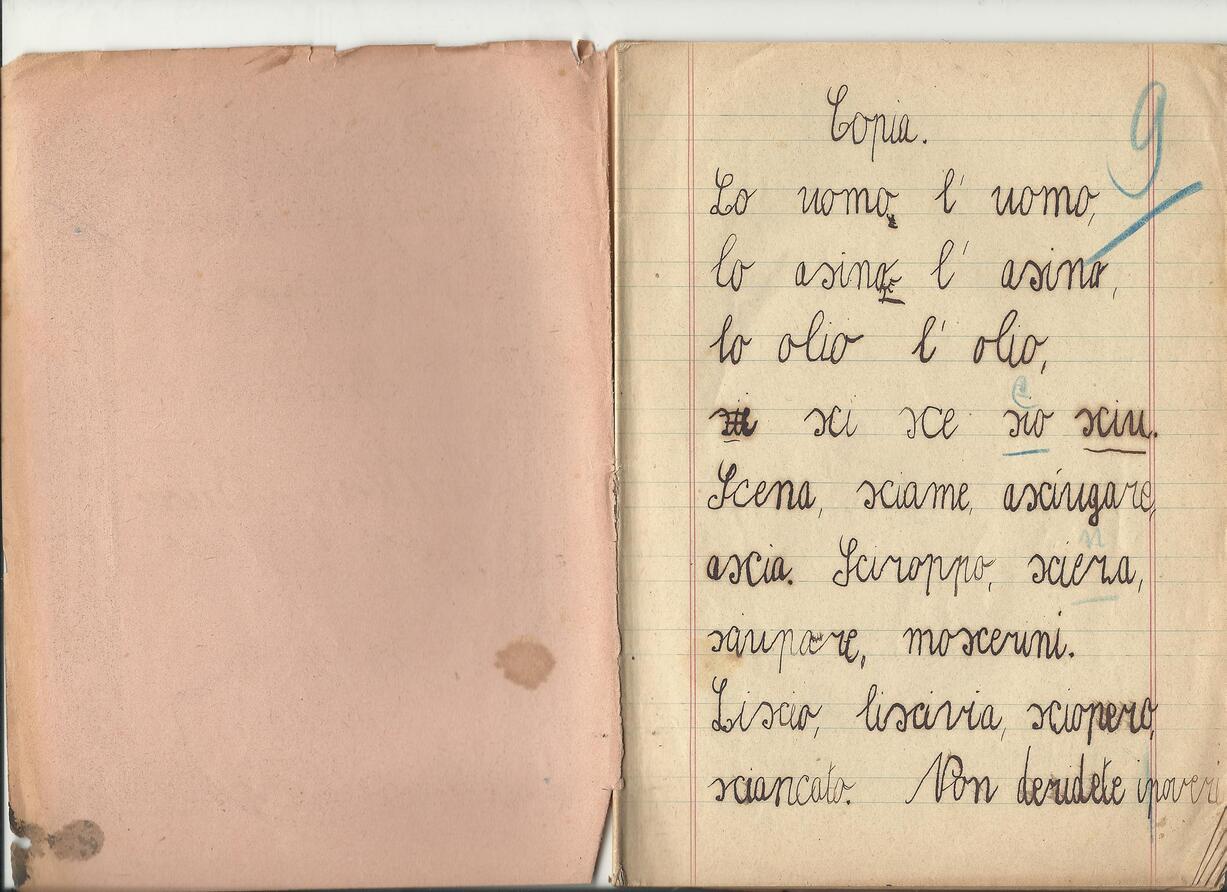 Copia.
9
Lo uomo, l' uomo,
lo asino l' asino,
lo olio l' olio,
c
sci sce sio sciu.
Scena, sciame, asciugare,
n
ascia. Sciroppo, sciera,
sciupare, moscerini.
Liscio, liscivia, sciopero,
sciancato. Non deridete i poveri